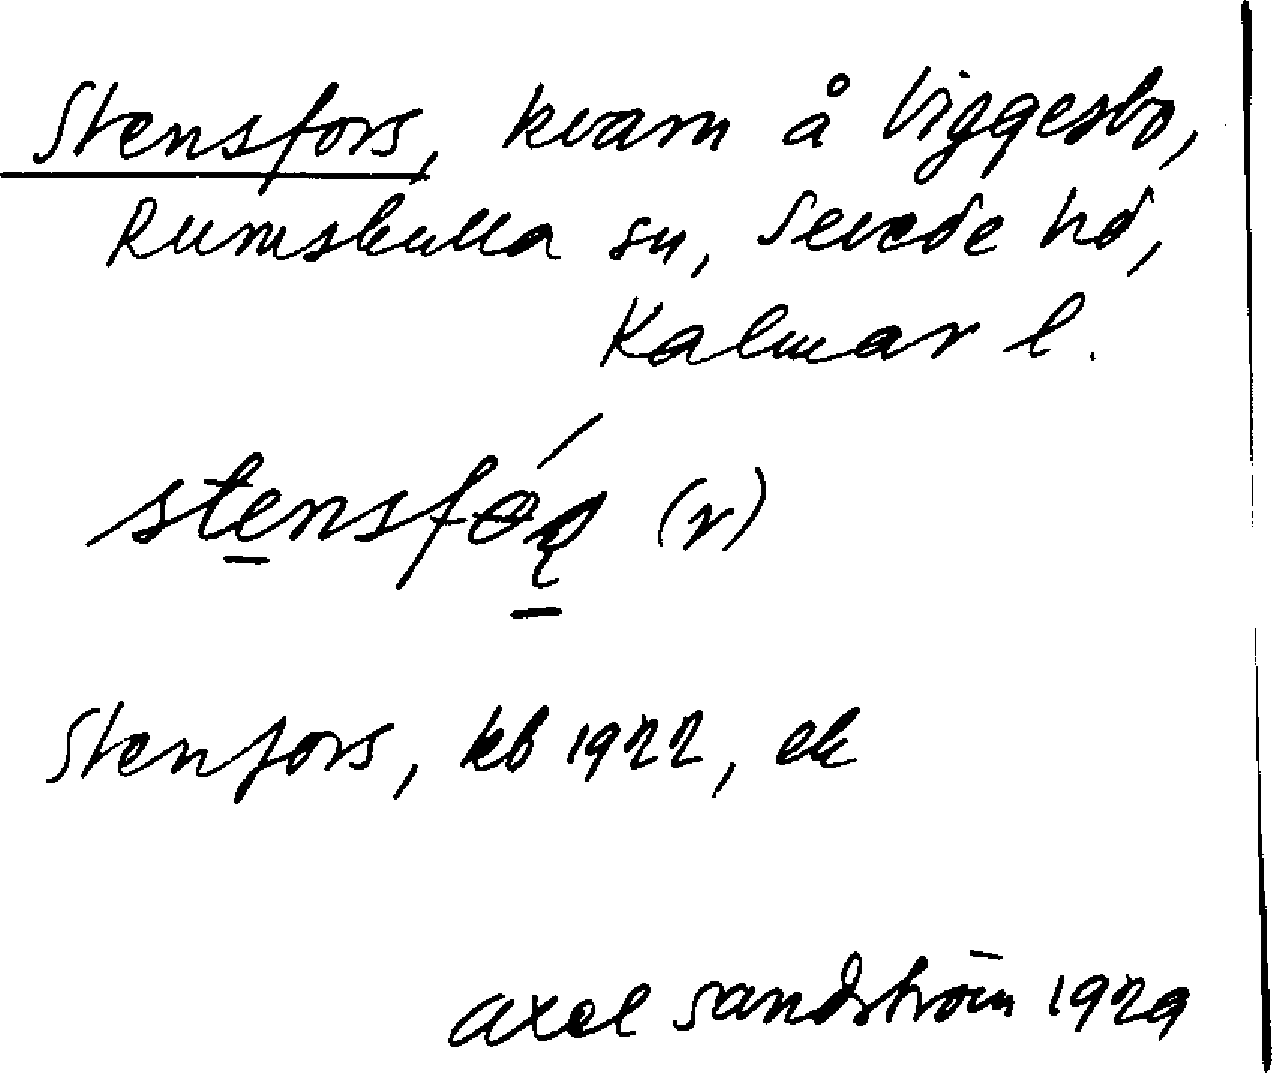 Stensfors, kvarn å Viggesbo,
Rumskulla sn, Sevede hd,
Kalmar l.
(r)
Stenfors, kb 1922, ek
Axel Sandström 1929